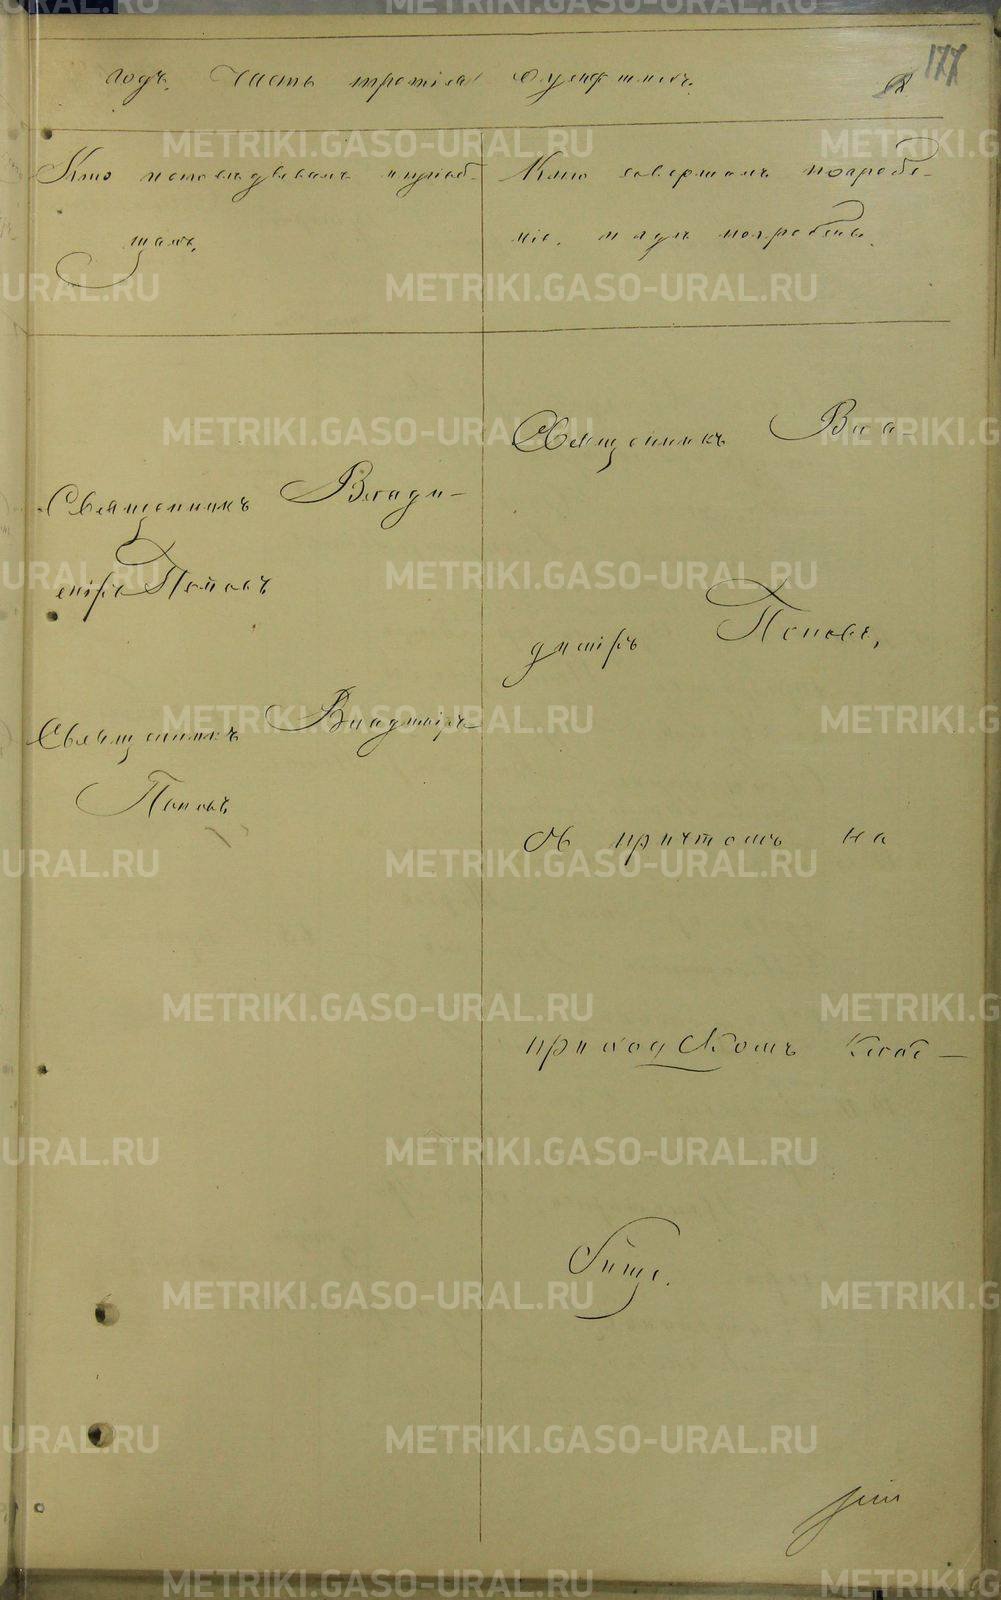 177
годъ. Часть третiя о умершихъ.
Кто исповѣдывалъ и прiоб-
щалъ.
Кто совершалъ погребе-
нiе и гдѣ погребены.
Священникъ Влади-
мiръ Поповъ
Священникъ Владимiръ
Поповъ
Священникъ Вла-
димiръ Поповъ,
съ причтомъ на
приходскомъ клад-
бищѣ.
METRIKI.GASO-URAL.RU